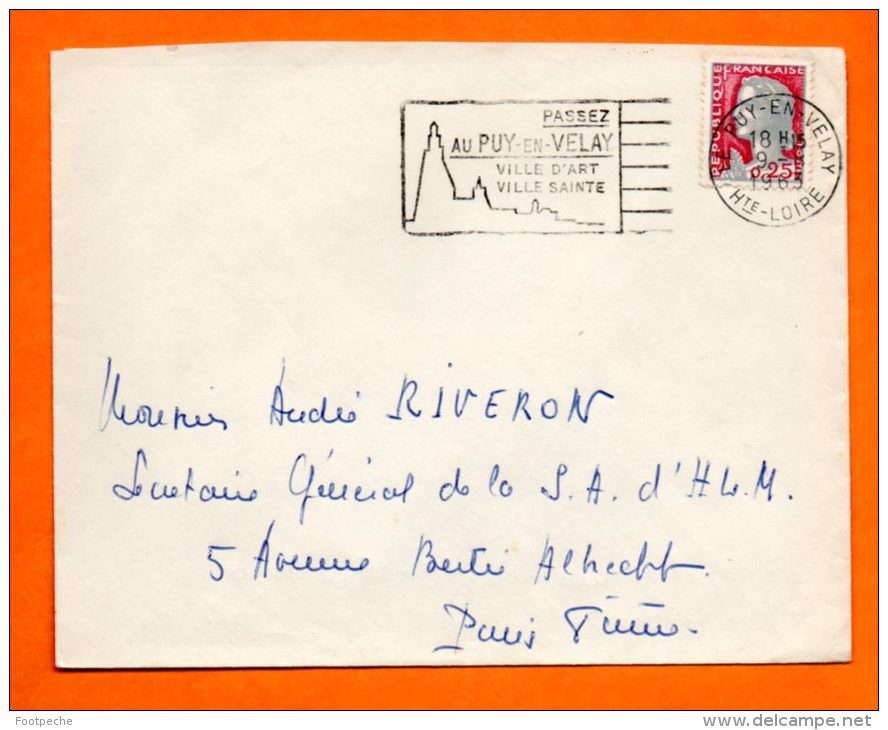 PASSEZ
AU PUY-EN-VELAY
VILLE D'ART
VILLE SAINTE
RÉPUBLIQUE FRANÇAISE
0,25
LE PUY-EN-VELAY
18 H15
9-
1963
HTE-LOIRE
Monsieur André RIVERON
Secrétaire Général de la S.A. d'H.L.M.
5 Avenue Bertie Albrecht
Paris
Footpeche
www.delcampe.net